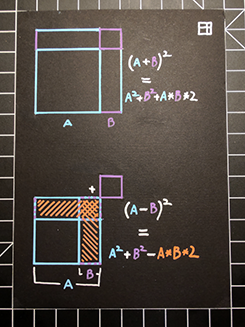 (A+B)²
=
A²+B²+A*B*2
A B
+
(A-B)²
=
A²+B²-A*B*2
B
A